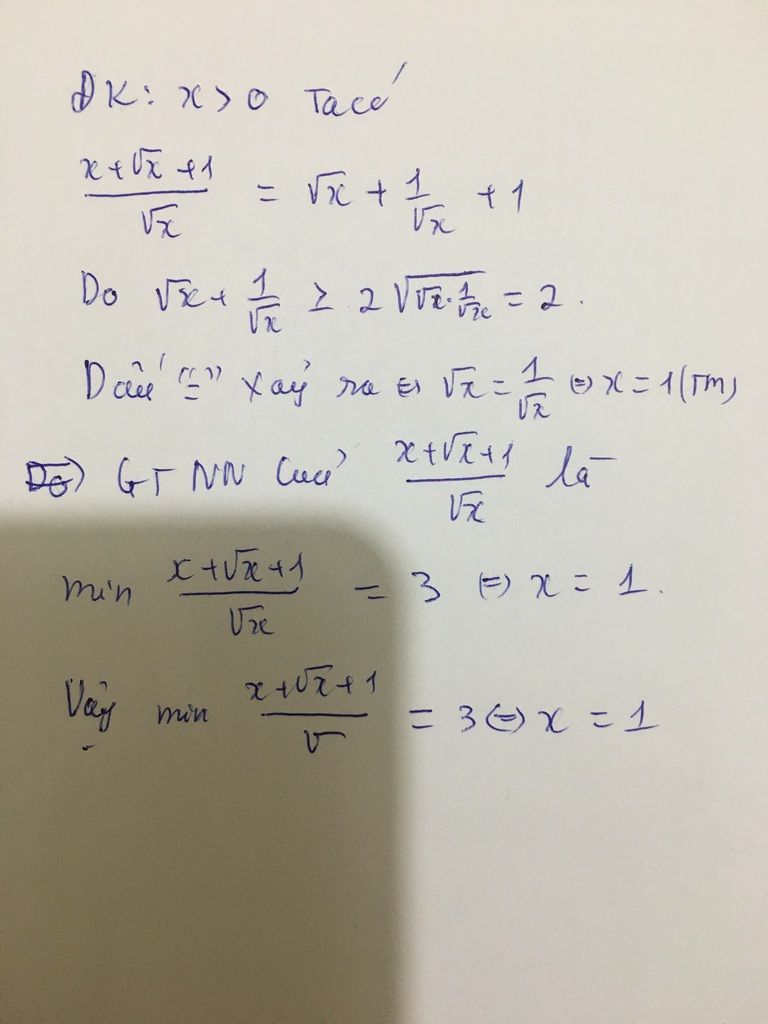 ĐK: x > 0 Ta có
(x+√x+1)/√x = √x + 1/√x + 1
Do √x + 1/√x ≥ 2√(√x·1/√x) = 2.
Dấu "=" xảy ra ⇔ √x = 1/√x ⇔ x = 1 (TM)
GTNN của (x+√x+1)/√x là
min (x+√x+1)/√x = 3 ⇔ x = 1.
Vậy min (x+√x+1)/√ = 3 ⇔ x = 1